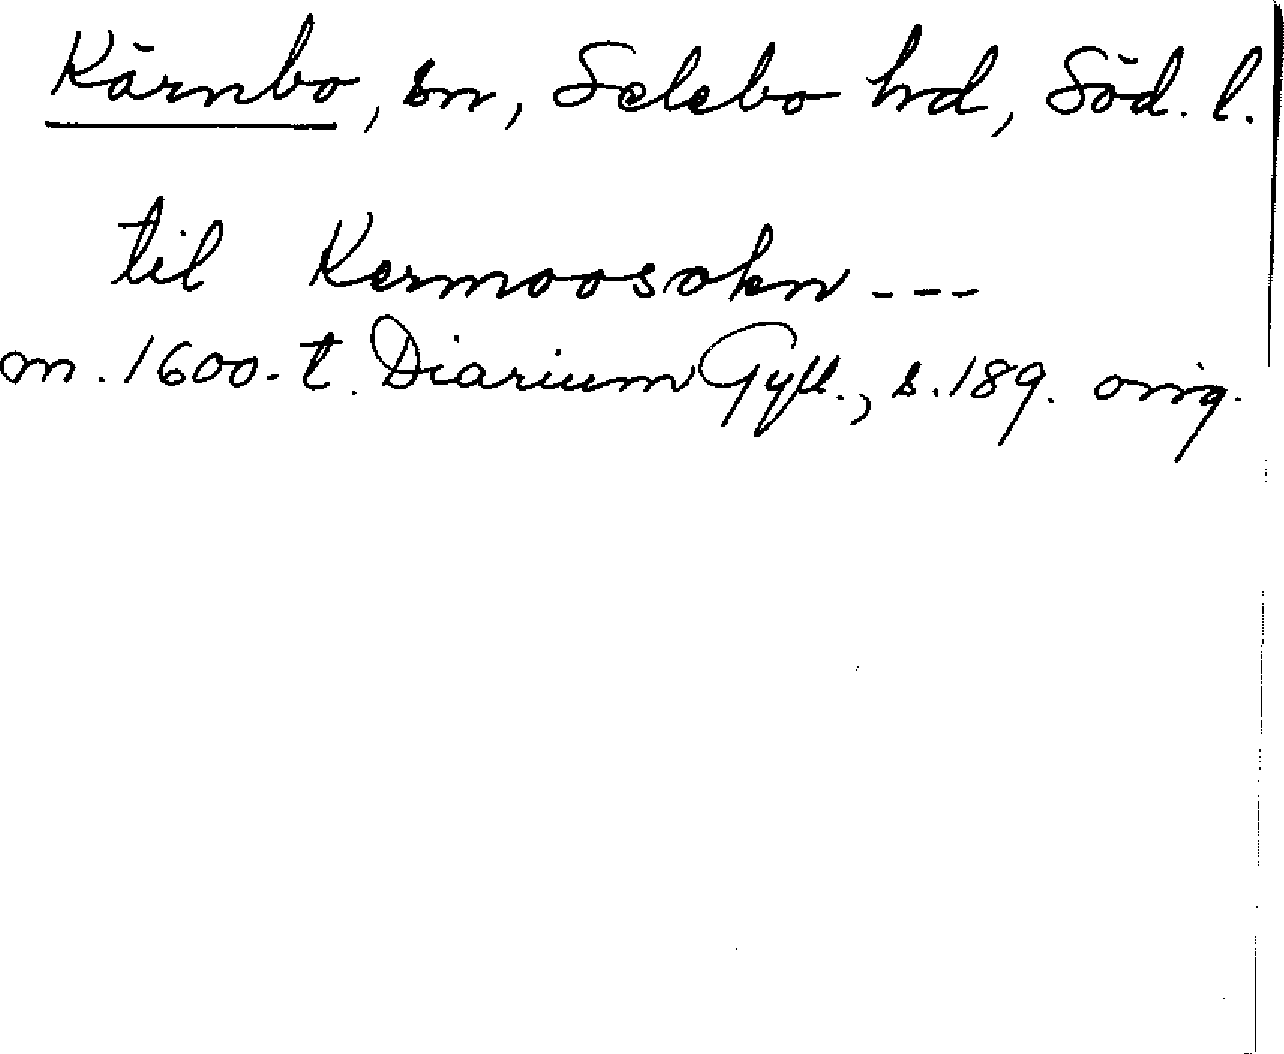 Kärnbo, sn, Selebo hd, Söd. l.
til Kermoosokn ---
m. 1600-t. Diarium Gyll., s. 189. orig.